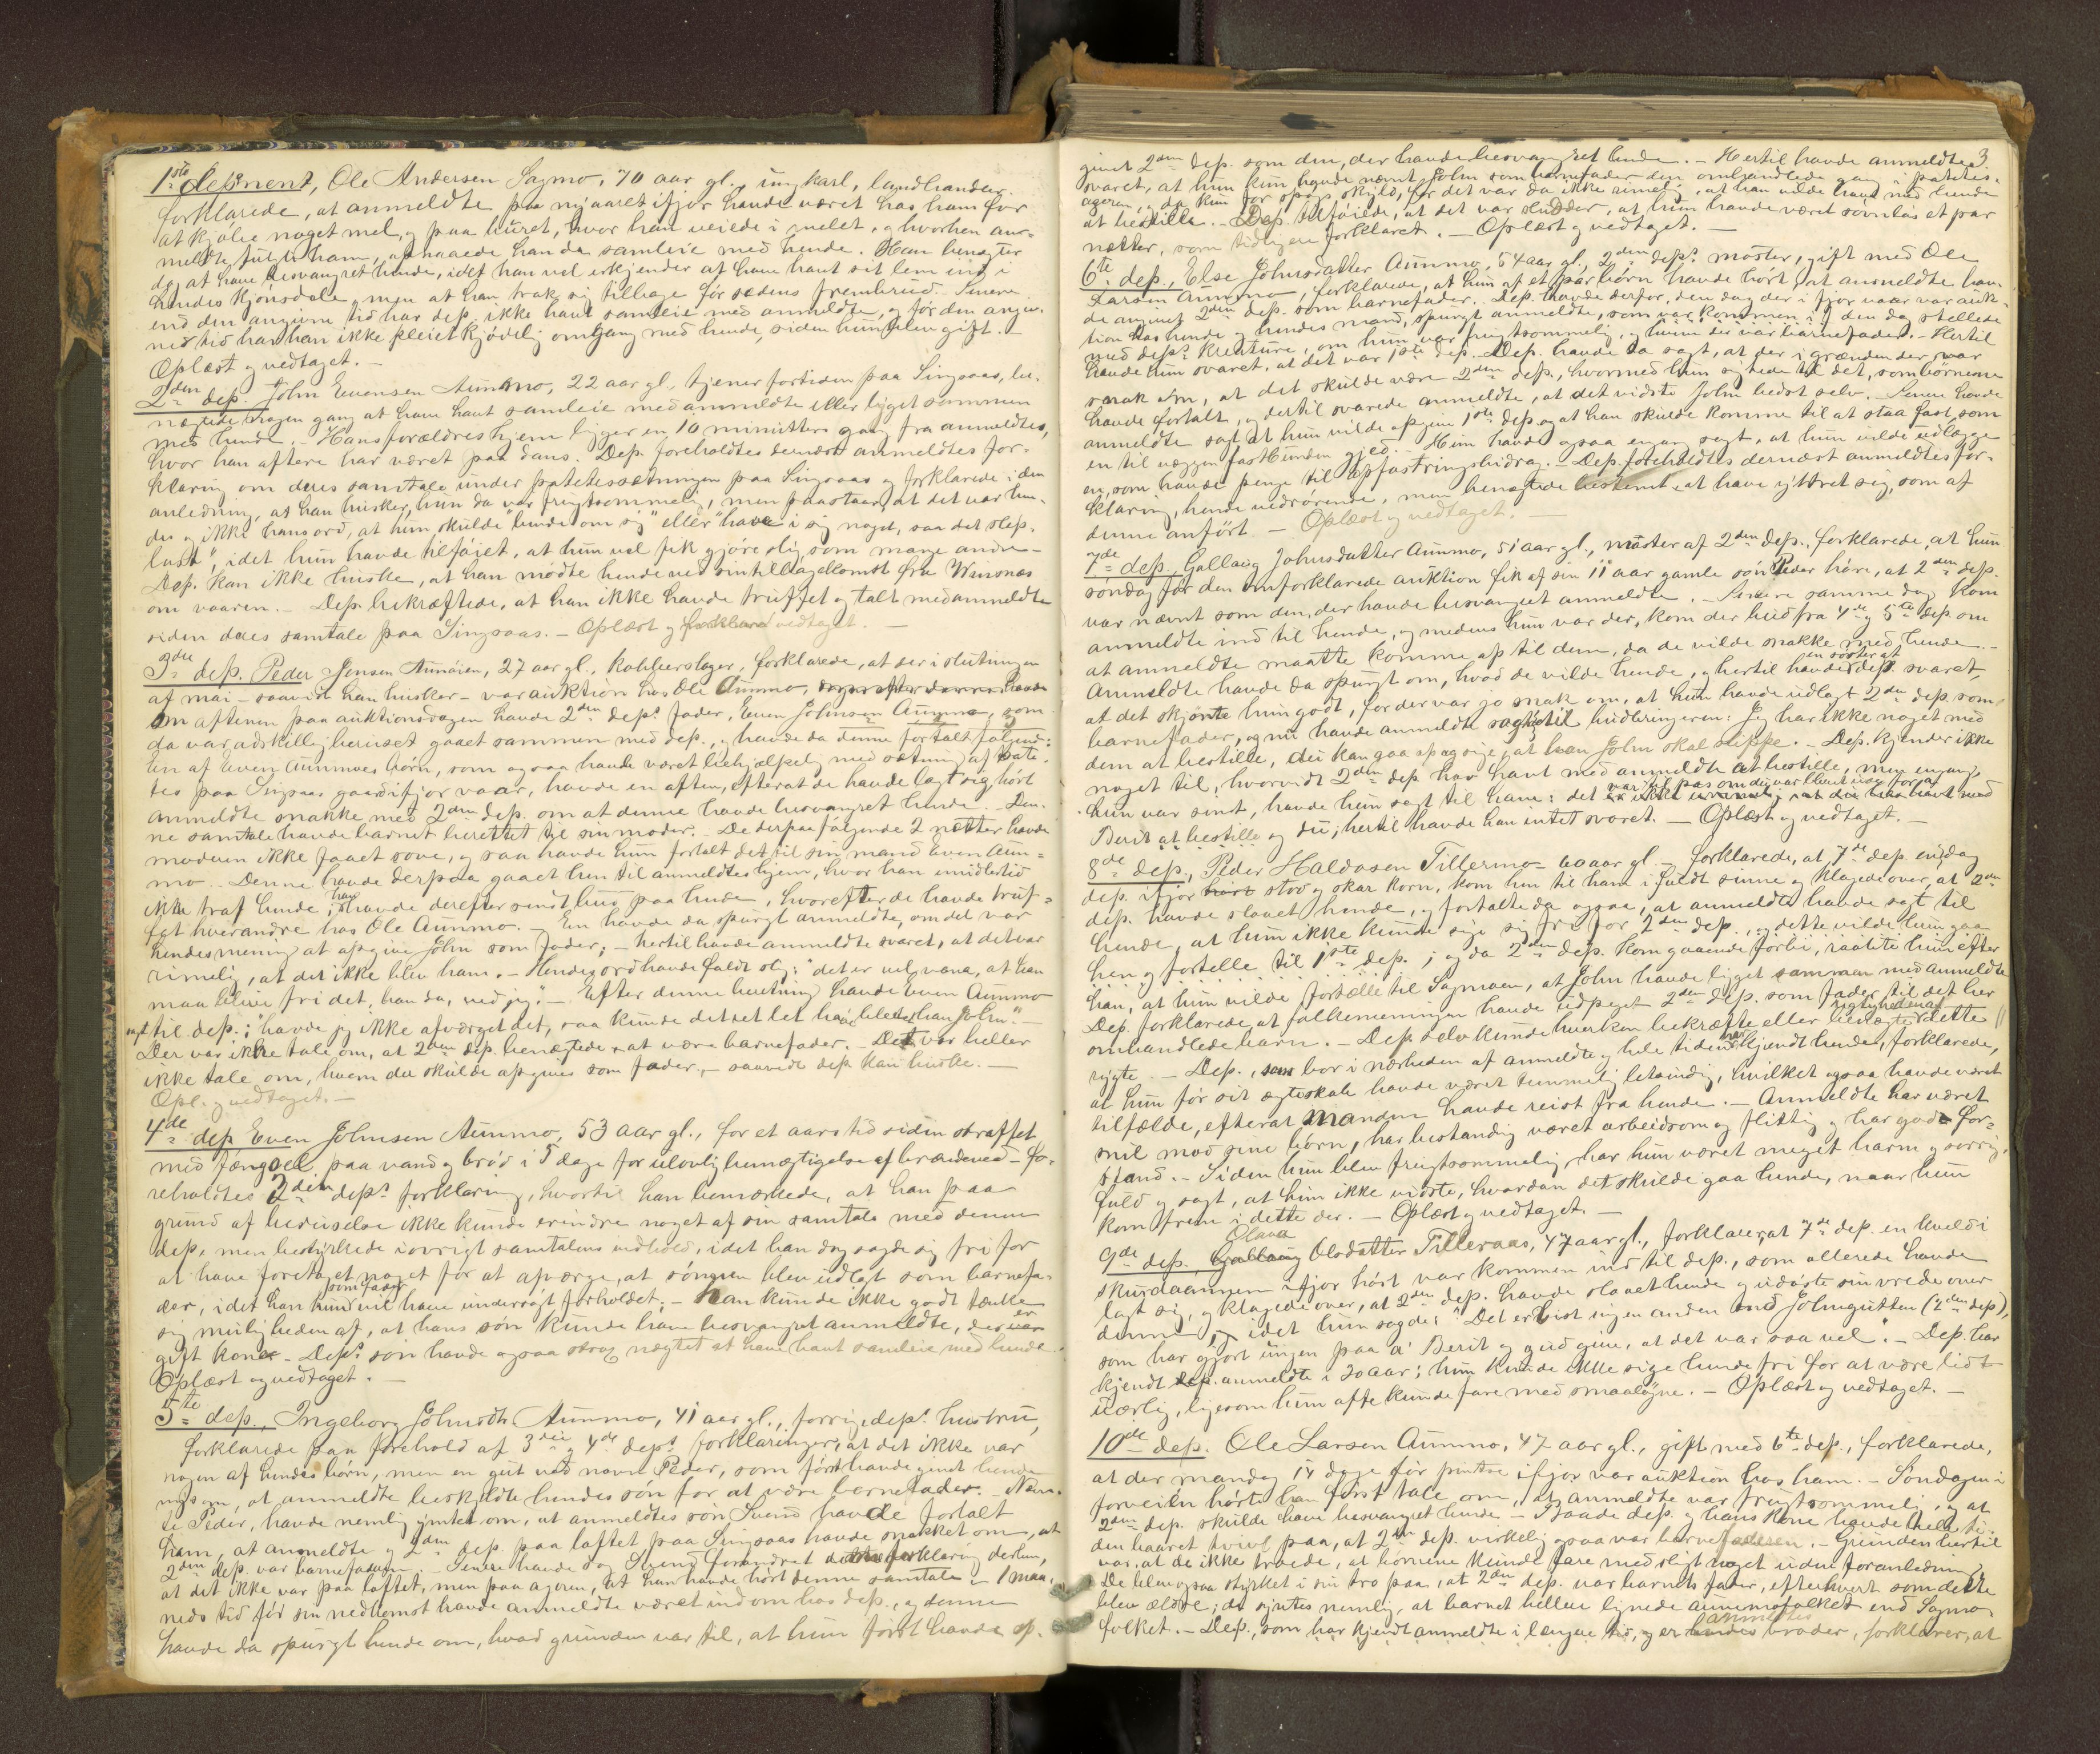 1ste deponent, Ole Andersen Sagmo, 70 aar gl., ungkarl, landhandler.
forklarede, at anmeldte paa nyaaret ifjor havde været hos ham for
at kjøbe noget mel, og paa buret, hvor han veiede i melet, og hvorhen an-
meldte fulgte ham, opnaaede han da samleie med hende. Han benegter
dog at have besvangret hende, idet han vel erkjender at have havt sit lem ind i
hendes kjønsdele, men at han trak sig tilbage før sædens frembrud. Senere
end den angivne tid har dep. ikke havt samleie med anmeldte, og før den angiv-
ne tid har han ikke pleiet kjødelig omgang med hende, siden hun blev gift. -
Oplæst og vedtaget. -
2den dep. John Evensen Aunmo, 22 aar gl., tjener fortiden paa Singsaas, be-
nægtede nogen gang at have havt samleie med anmeldte eller ligget sammen
med hende. - Hans forældres hjem ligger en 10 minutters gang fra anmeldtes,
hvor han aftere har været paa dans. Dep. foreholdtes dernæst anmeldtes for-
klaring om deres samtale under potetessætningen paa Singsaas og forklarede i den
anledning, at han husker, hun da var frugtsommelig, men paastaar, at det var hen-
des og ikke hans ord, at hun skulde "binde om sig" eller "have i sig noget, saa det slap
løst", idet hun havde tilføiet, at hun vel fik gjøre slig som mange andre -
Dep. kan ikke huske, at han mødte hende ved sin tilbagekomst fra Winsnes
om vaaren. - Dep. bekræftede, at han ikke havde truffet og talt med anmeldte
siden deres samtale paa Singsaas. - Oplæst og vedtaget. -
3die dep. Peder Jensen Aunøien, 27 aar gl., kobberslager, forklarede, at der i slutningen
af mai - saavidt han husker - var auktion hos Ole Aunmo,
Om aftenen paa auktionsdagen havde 2den deps fader, Even Johnsen Aunmo, som
da var adskillig beruset gaaet sammen med dep., og havde da denne fortalt følgende:
En af Even Aunmoes børn, som ogsaa havde været behjælpelig med sætning af pote-
tes paa Singsaas gaard ifjor vaar, havde en aften, efterat de havde lagt sig hørt
anmeldte snakke med 2den dep. om at denne havde besvangret hende. Den-
ne samtale havde barnet berettet til sin moder. - De derpaa følgende 2 nætter havde
moderen ikke faaet sove, og saa havde hun fortalt det til sin mand Even Aun-
mo. - Denne havde derpaa gaaet hen til anmeldtes hjem, hvor han imidlertid
ikke traf hende; han havde derefter sendt bud paa hende, hvorefter de havde truf-
fet hverandre hos Ole Aunmo. - En havde da spurgt anmeldte, om det var
hendes mening at opgive John som fader; - hertil havde anmeldte svaret, at det var
rimelig, at det ikke blev ham. - Hendes ord havde faldt slig: "det er vel vana, at han
maa blive fri det, han da, ved jeg". - Efter denne beretning havde Even Aunmo
sagt til dep.: "havde jeg ikke afværget det, saa kunde det let ha blet han John". -
Der var ikke tale om, at 2den dep. benegtede at være barnefader. - Det var heller
ikke tale om, hvem der skulde opgives som fader, - saavidt dep. kan huske. -
Opl. og vedtaget. -
4de dep. Even Johnsen Aunmo, 53 aar gl., for et aars tid siden straffet
med fængsel paa vand og brød i 5 dage for ulovlig bemægtigelse af brændeved - fo-
reholdtes 2den deps forklaring, hvortil han bemærkede, at han paa
grund af beruselse ikke kunde erindre noget af sin samtale med denne
dep. men bestyrkede iøvrigt samtalens indhold, idet han dog sagde sig fri for
at have foretaget noget for at afværge, at sønnen blev udlagt som barnefa-
der, idet han kun som fader vil have undersøgt forholdet. - Han kunde ikke godt tænke
sig muligheden af, at hans søn kunde have besvangret anmeldte, der er
gift kone. - Deps søn havde ogsaa strag nægtet at have havt samleie med hende.
Oplæst og vedtaget. -
5te dep., Ingeborg Johnsdtr. Aunmo, 41 aar gl., forrige deps hustru,
forklarede paa forehold af 3die og 4de deps forklaringer, at det ikke var
nogen af hendes børn, men en gut ved navn Peder, som først havde givet hende
nys om, at anmeldte beskyldte hendes søn for at være barnefader. - Nævn-
te Peder, havde nemlig ymtet om, at anmeldtes søn Svend havde fortalt
ham, at anmeldte og 2den dep. paa loftet paa Singsaas havde snakket om, at
2den dep. var barnefaderen. - Senere havde dog Svend forandret forklaring derhen,
at det ikke var paa loftet, men paa ageren, at han havde hørt denne samtale. - 1 maa-
neds tid før sin nedkomst havde anmeldte været indom hos dep., og denne
havde da spurgt hende om, hvad grunden var til, at hun først havde op-
3.
givet 2den dep. som den, der havde besvangret hende. - Hertil havde anmeldte
svaret, at hun kun havde nævnt John som barnefader den omhandlede gang i potetes-
ageren, og da kun for spøgs skyld, for det var da ikke rimelig, at han vilde havt med hende
at bestille. - Dep. tilføiede, at det var sludder, at hun havde været søvnløs et par
nætter, som tidligere forklaret. - Oplæst og vedtaget. -
6te dep., Else Johnsdatter Aunmo, 54 aar gl., 2den deps moster, gift med Ole
Larsen Aunmo, forklarede, at hun af et par børn havde hørt, at anmeldte hav-
de angivet 2den dep. som barnefader. Dep. havde derfor, den dag der i fjor vaar var auk-
tion hos hende og hendes mand, spurgt anmeldte, som var kommen i den dag stellede
med deps kreature, om hun var frugtsommelig, og hvem der var barnefader. - Hertil
havde hun svaret, at det var 1ste dep. Dep. havde da sagt, at der i grænden der, var
snak om, at det skulde være 2den dep., hvormed hun sigtede til det, som børnene
havde fortalt, og dertil svarede anmeldte, at det vidste John bedst selv. Senere havde
anmeldte sagt at hun vilde opgive 1ste dep. og at han skulde komme til at staa fast, som
en til væggen fastbunden gjed. - Hun havde ogsaa engang sagt, at hun vilde udlægge
en, som havde penge til opfostringsbidrag. - Dep. foreholdtes dernæst anmeldtes for-
klaring, hende vedrørende, men benegtede bestemt at have yttret sig, som af
denne anført. - Oplæst og vedtaget. -
7de dep., Gollaug Johnsdatter Aunmo, 51 aar gl., moster af 2den dep., forklarede, at hun
søndag før den omforklarede auktion fik af sin 11 aar gamle søn Peder høre, at 2den dep.
var nævnt som den, der havde besvangret anmeldte. - Senere samme dag kom
anmeldte ind til hende, og medens hun var der, kom der bud fra 4de og 5te dep. om
at anmeldte maatte komme op til dem, da de vilde snakke med hende. -
Anmeldte havde da spurgt om, hvad de vilde hende, og hertil havde en søster af dep. svaret,
at det skjønte hun godt, for der var jo snak om, at hun havde udlagt 2den dep. som
barnefader, og nu havde anmeldte sagt til budbringeren: Jeg har ikke noget med
dem at bestille, du kan gaa op og sige, at han John skal slippe. - Dep. kjender ikke
noget til, hvorvidt 2den dep. har havt med anmeldte at bestille, men engang,
hun var sint, havde hun sagt til ham: det
Berit at bestille og du; hertil havde han intet svaret. - Oplæst og vedtaget. -
8de dep., Peder Haldosen Tillermo 60 aar gl. - forklarede, at 7de dep. en dag
dep. ifjor stod og skar korn, kom hen til ham i fuldt sinne og klagede over, at 2den
dep. havde slaaet hende, og fortalte da ogsaa, at anmeldte havde sagt til
hende, at hun ikke kunde sige sig fri for 2den dep., og dette vilde hun gaa
hen og fortelle til 1ste dep.; og da 2den dep. kom gaaende forbi, raabte hun efter
han, at hun vilde fortælle til Sagmoen, at John havde ligget sammen med anmeldte
Dep. forklarede, at folkemeningen havde udpeget 2den dep. som fader til det her
omhandlede barn. - Dep. selv kunde hverken bekræfte eller benegte rigtigheden af dette
rygte. - Dep., som bor i nærheden af anmeldte og hele tiden har kjendt hende, forklarede,
at hun før sit ægteskab havde været temmelig letsindig, hvilket ogsaa havde været
tilfælde, efterat manden havde reist fra hende. - Anmeldte har været
snil mod sine børn, har bestandig været arbeidsom og flittig og har god for-
stand. - Siden hun blev frugtsommelig har hun været meget harm og sorrig-
fuld og sagt, at hun ikke vidste, hvordan det skulde gaa hende, naar hun
kom frem i dette der. - Oplæst og vedtaget. -
9de dep. Olava Olsdatter Tilleraas, 47 aar gl., forklarer, at 7de dep. en kveld i
skurdaannen ifjor høst var kommen ind til dep., som allerede havde
lagt sig, og klagede over, at 2den dep. havde slaaet hende og udøste sin vrede over
denne, idet hun sagde: "Det er vist ingen anden end Johngutten (2den dep),
som har gjort ungen paa a' Berit og gud give, at det var saa vel". - Dep. har
kjendt anmeldte i 20 aar; hun kunde ikke sige hende fri for at være lidt
uærlig, ligesom hun ofte kunde fare med smaaløgne. - Oplæst og vedtaget. -
10de dep. Ole Larsen Aunmo, 47 aar gl., gift med 6te dep., forklarede,
at der mandag 14 dage før pintse ifjor var auktion hos ham. - Søndagen i
forveien hørte han først tale om, at anmeldte var frugtsommelig, og at
2den dep. skulde have besvangret hende. - Baade dep. og hans kone havde hele ti-
den baaret tvivl paa, at 2den dep. virkelig ogsaa var barnefaderen. - Grunden hertil
var, at de ikke troede, at børnene kunde fare med sligt noget uden foranledning.
De blev ogsaa styrket i sin tro paa, at 2den dep. var barnets fader, efterhvert som dette
blev ældre; de syntes nemlig, at barnet heller lignede aunmofolket end Sagmo-
folket. - Dep., som har kjendt anmeldte i længere tid, og er anmeldtes broder, forklarer, at